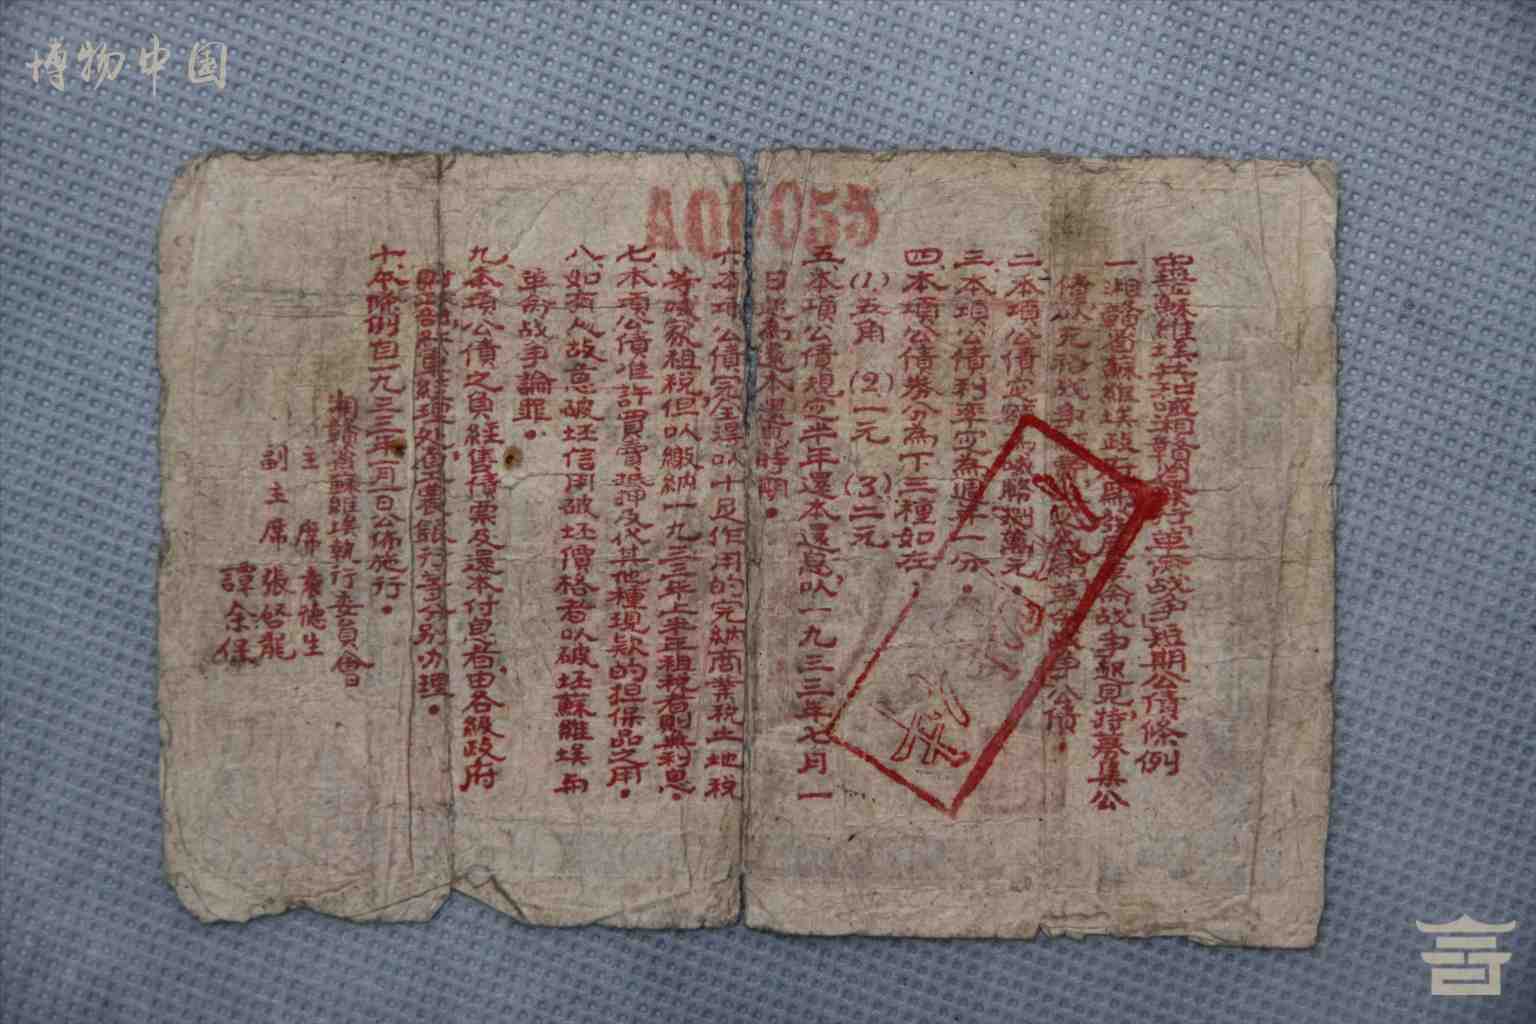 博物中国
中華蘇維埃共和國湘贛省發行革命战争短期公債條例
一湘贛省蘇維埃政府為 革命战争起見,特募集公
債 定名 革命战争公債.
二、本項公債定額為 捌萬元.
三、本項公債利率定為週年一分.
四、本項公債券分為下三種如左:
(1)五角 (2)一元 (3)二元
五、本項公債規定半年還本還息,以一九三三年七月一
日 為還本還息時期.
六、本項公債完全得以十足作用的完納商業税土地税
等國家租税,但以繳納一九三三年上半年租税者則無利息.
七本項公債准許買賣抵押及代其他種現欵的担保品之用.
八如有人故意破坯信用破坯價格者以破坯蘇維埃与
革命战争論罪.
九、本項公債之負経售債票及還本付息者由各級政府
財 部 経理处 工農銀行等分别办理.
十、本條例自一九三三年一月一日公佈施行.
湘贛省蘇維埃執行委員會
主 席 袁德生
副主席 張啓龍
譚余保